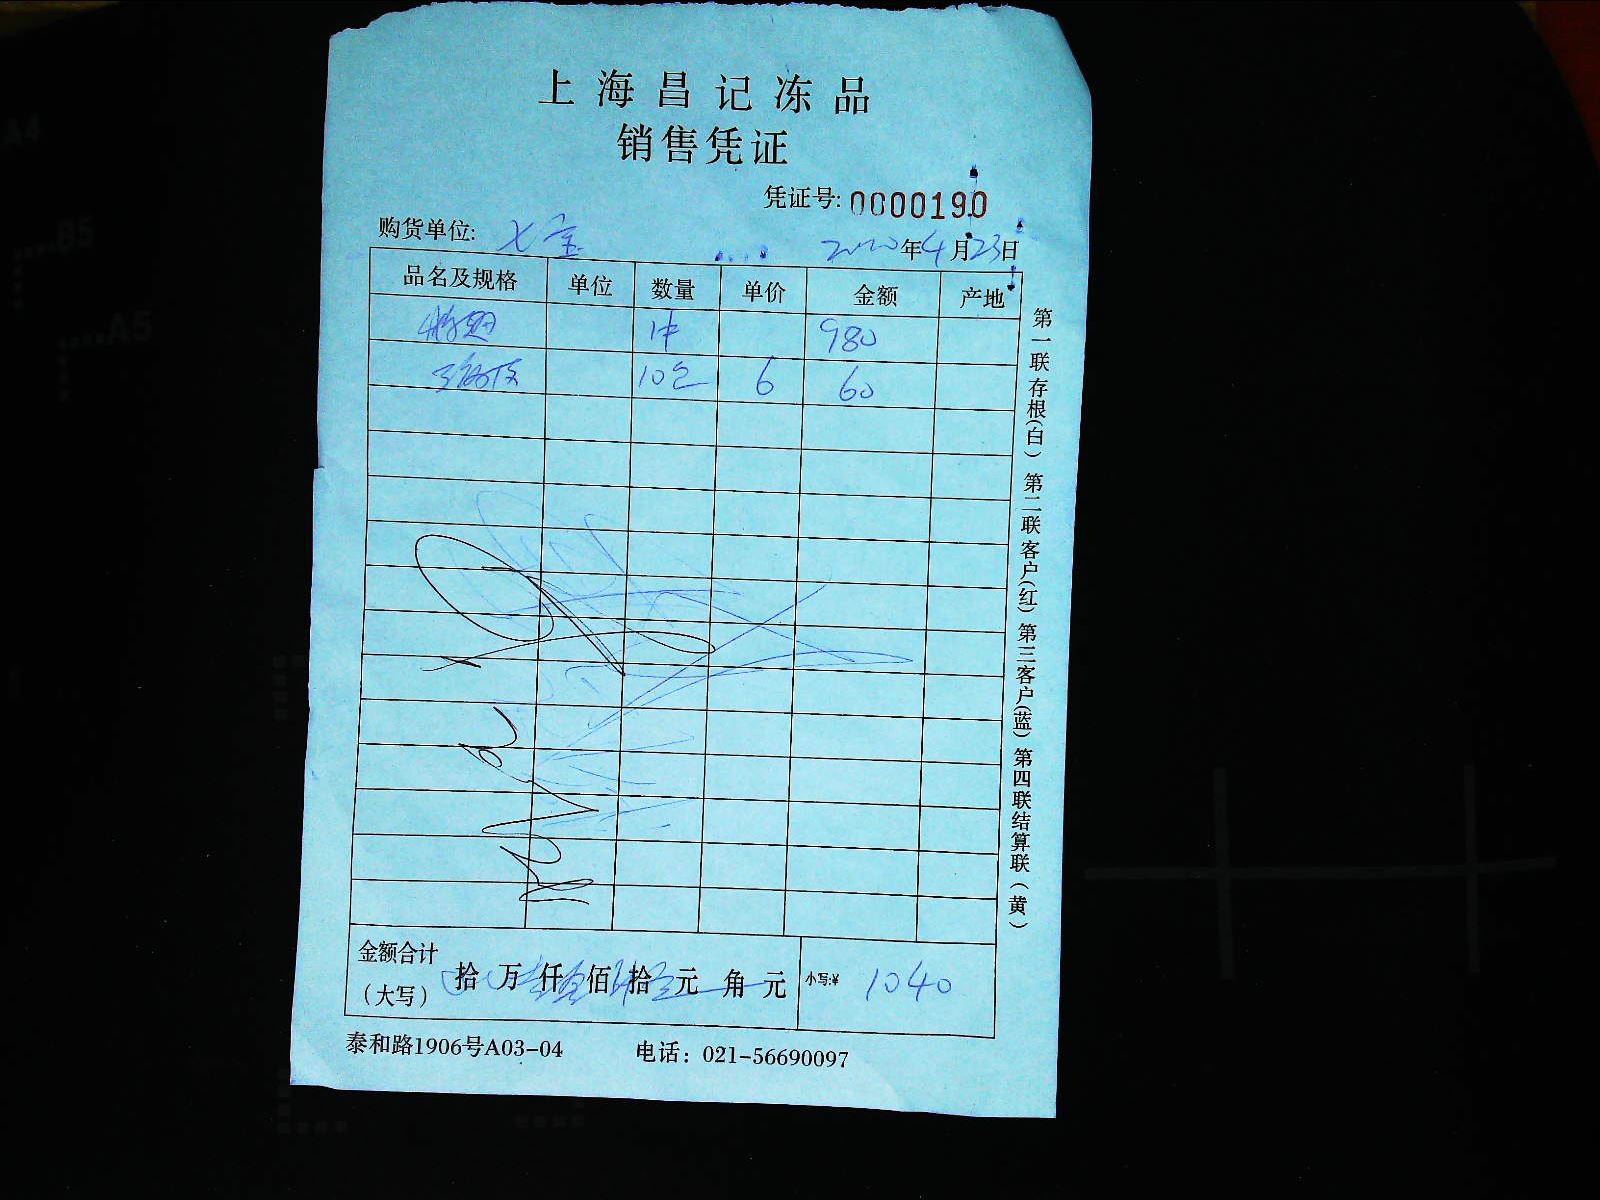 上海昌记冻品
销售凭证
凭证号: 0000190
购货单位: 七宝
2020年4月23日
品名及规格 单位 数量 单价 金额 产地
1件 980
10包 6 60
金额合计
（大写）
拾 万 仟 佰 拾 元 角 元
小写:¥ 1040
泰和路1906号A03-04 电话：021-56690097
第一联存根(白) 第二联客户(红) 第三客户(蓝) 第四联结算联(黄)
A4
B5
A5